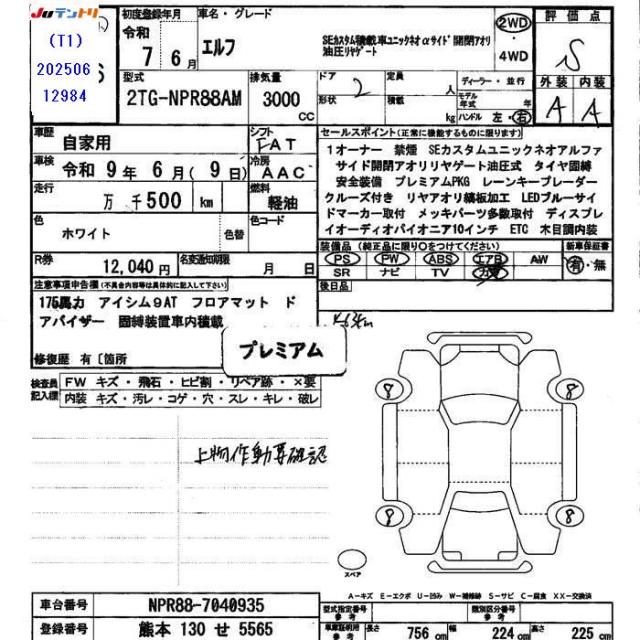 JUテントリ
(T1)
202506
12984
初度登録年月
令和
7 年 6 月
車名・グレード
エルフ
SEカスタム積載車ユニックネオαサイド開閉アオリ
油圧リヤゲート
2WD
4WD
評価点
S
外装 内装
A A
型式
2TG-NPR88AM
排気量
3000
CC
ドア
2
形状
定員
人
積載
kg
ディーラー・並行
モデル年式
年
ハンドル 左・右
車歴
自家用
シフト
FAT
車検
令和 9 年 6 月 ( 9 日)
冷房
AAC
走行
万 千500 km
燃料
軽油
色
ホワイト
色替
色コード
R券
12,040円
名変通知期限
月 日
セールスポイント(正常に機能するものに限ります)
1オーナー 禁煙 SEカスタムユニックネオアルファ
サイド開閉アオリリヤゲート油圧式 タイヤ固縛
安全装備 プレミアムPKG レーンキープレーダー
クルーズ付き リヤアオリ縞板加工 LEDブルーサイ
ドマーカー取付 メッキパーツ多数取付 ディスプレ
イオーディオパイオニア10インチ ETC 木目調内装
装備品(純正品に限り〇をつけてください)
新車保証書
PS PW ABS エアB AW
SR ナビ TV カワ
有・無
後日品
注意事項申告欄(不具合内容等は具体的に記入して下さい)
175馬力 アイシム9AT フロアマット ド
アバイザー 固縛装置車内積載
プレミアム
修復歴 有〔箇所
検査員
記入欄
FW キズ・飛石・ヒビ割・リペア跡・×要
内装 キズ・汚レ・コゲ・穴・スレ・キレ・破レ
上物作動要確認
8
8
8
8
スペア
A-キズ E-エクボ U-凹み W-補修跡 S-サビ C-腐食 XX-交換済
車台番号
NPR88-7040935
登録番号
熊本 130 せ 5565
型式指定番号
参考
類別区分番号
参考
車庫証明用
参考
長さ
756 cm
幅
224 cm
高さ
225 cm